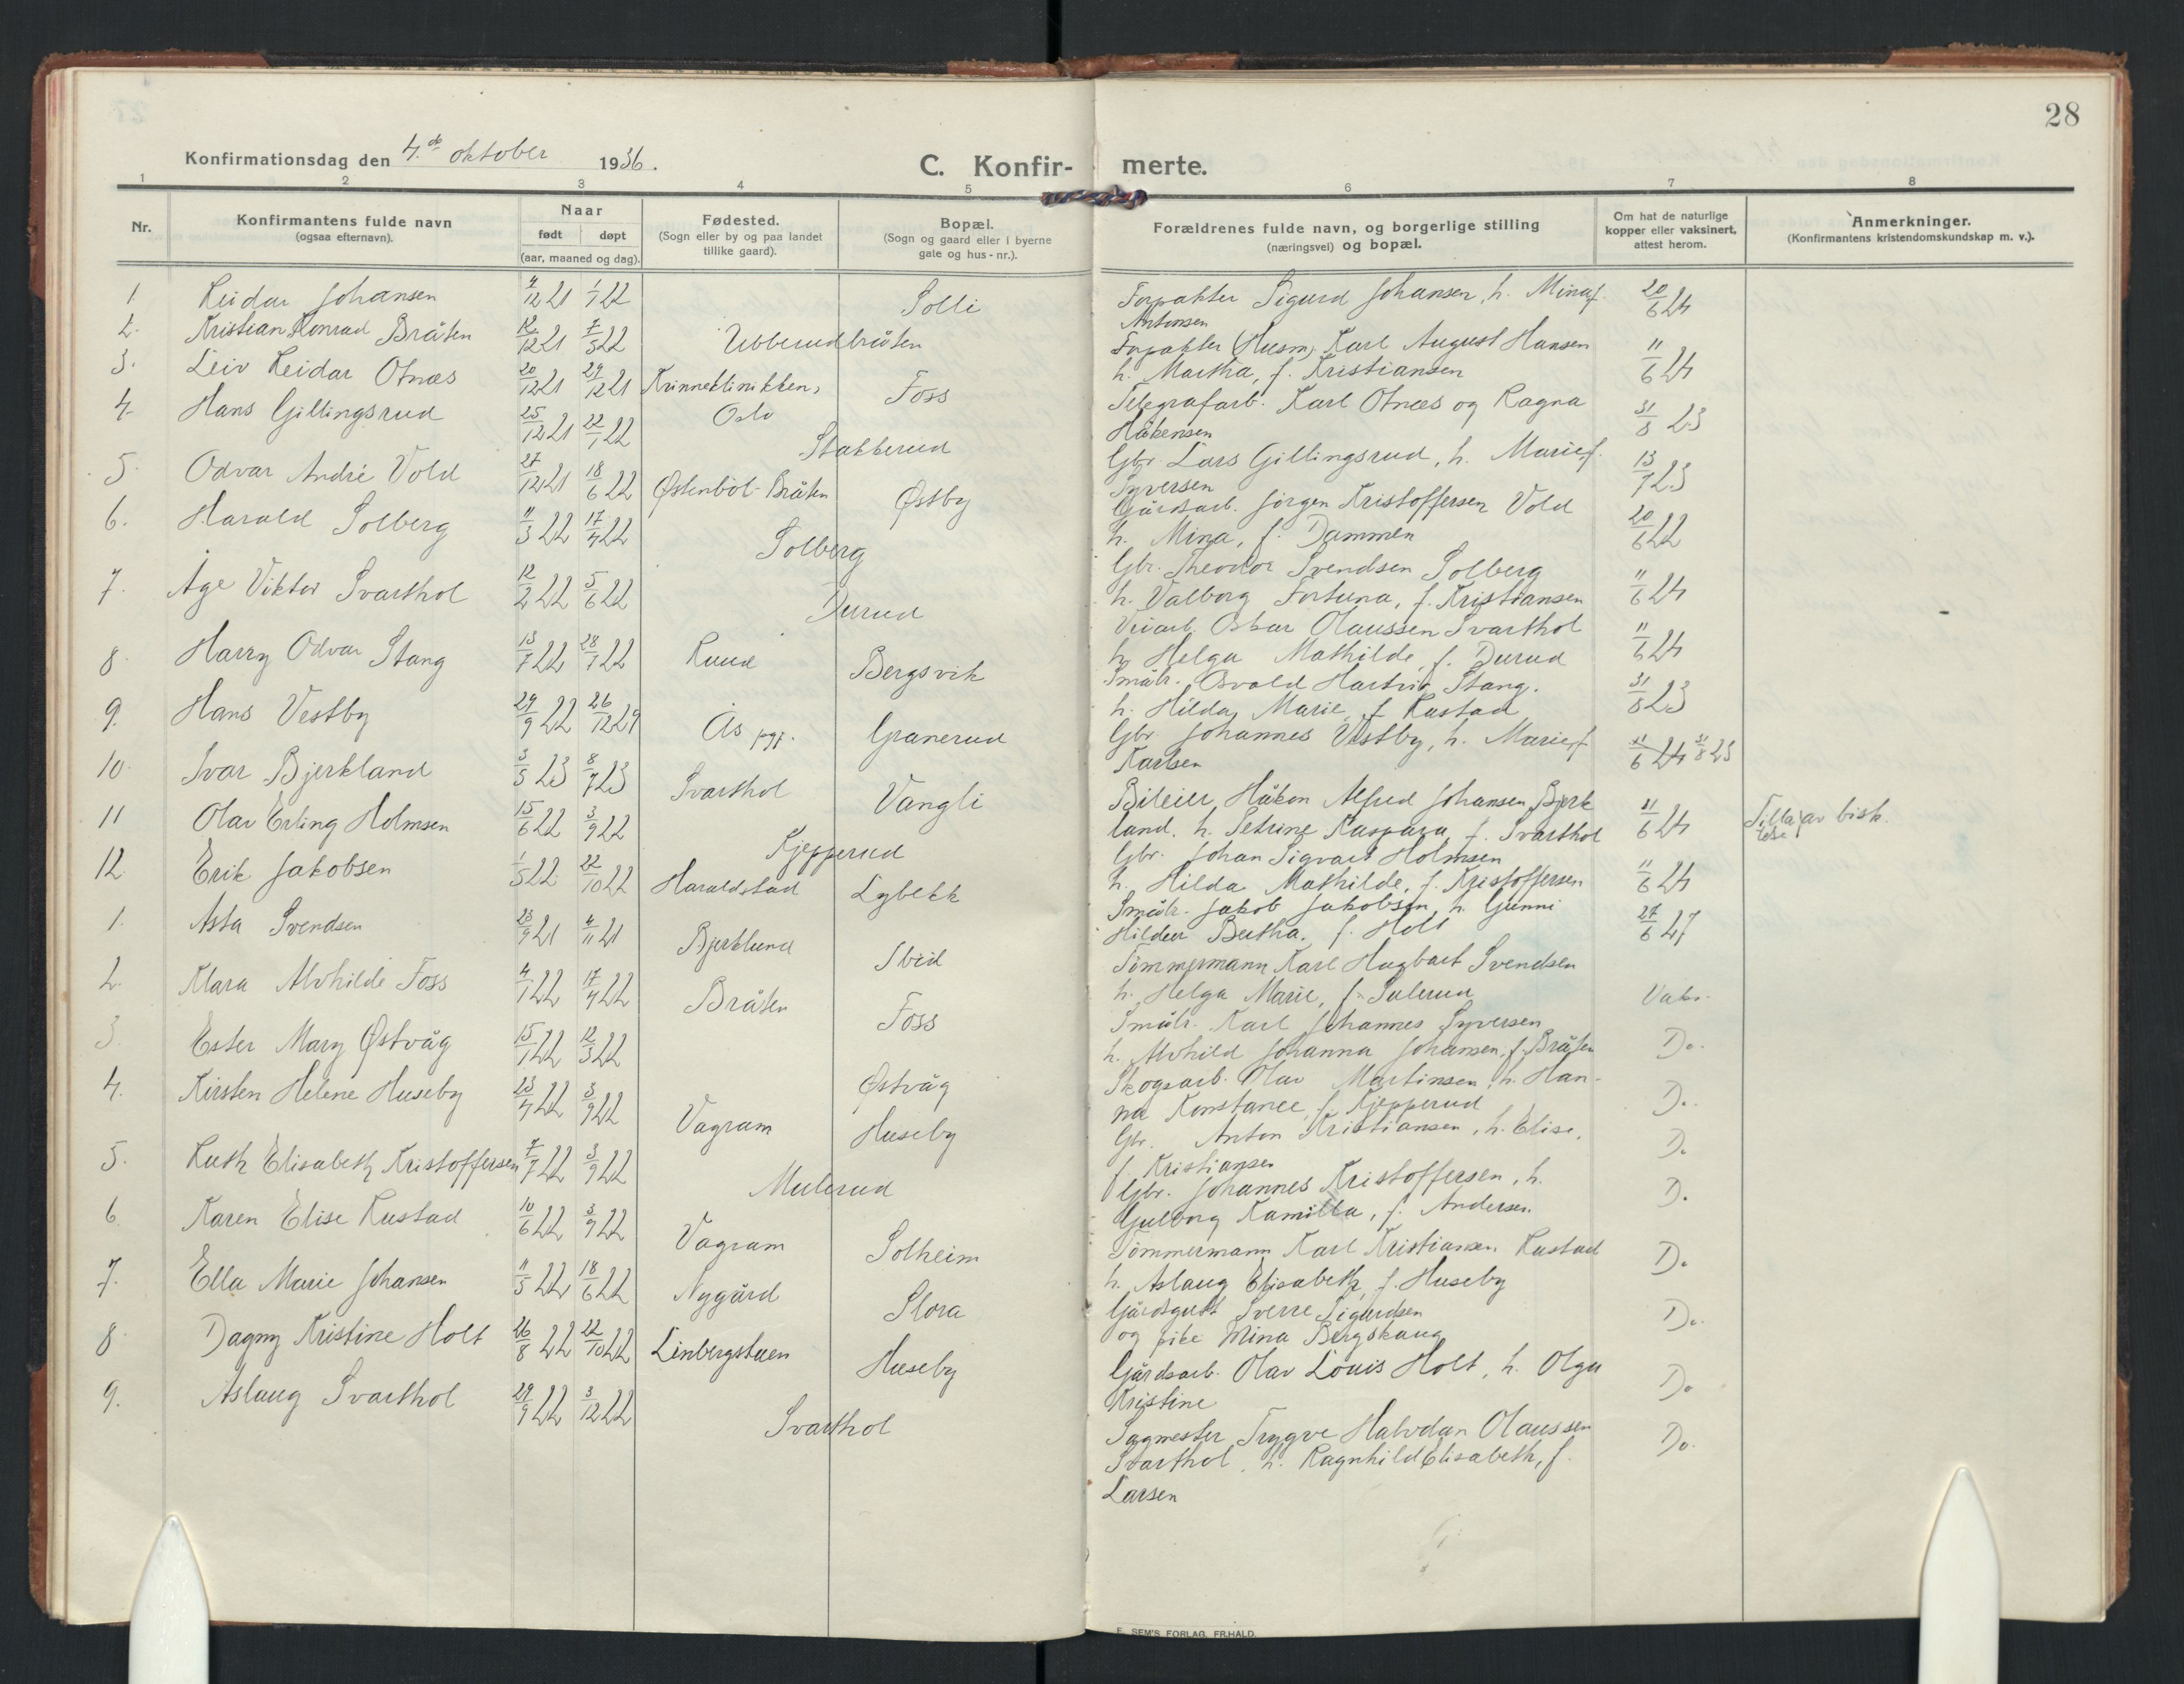 28
Konfirmationsdag den 4.de oktober 1936.
C. Konfir- merte.
1 2 3 4 5 6 7 8
Nr.
Konfirmantens fulde navn
(ogsaa efternavn).
Naar
født døpt
(aar, maaned og dag).
Fødested.
(Sogn eller by og paa landet
tillike gaard).
Bopæl.
(Sogn og gaard eller i byerne
gate og hus-nr.).
Forældrenes fulde navn, og borgerlige stilling
(næringsvei) og bopæl.
Om hat de naturlige
kopper eller vaksinert,
attest herom.
Anmerkninger.
(Konfirmantens kristendomskundskap m. v.).
1. Reidar Johansen 4/12 21 1/1 22 Solli
Forpakter Sigurd Johansen, h. Mina f.
Antonsen
20/6 24
2. Kristian Konrad Bråten 12/12 21 7/5 22 Ubberudbråten
Forpakter (Husm) Karl August Hansen
h. Martha, f. Kristiansen
11/6 24
3. Leiv Reidar Otnæs 20/12 21 29/12 21 Kvinneklinikken, Oslo Foss
Telegrafarb. Karl Otnæs og Ragna
Håkensen
31/8 23
4. Hans Gillingsrud 25/12 21 22/1 22 Stakkerud
Gbr. Lars Gillingsrud, h. Marie f.
Syversen
13/7 23
5. Odvar André Vold 27/12 21 18/6 22 Østenbøl-Bråten Østby
Gårdsarb. Jörgen Kristoffersen Vold
h. Mina, f. Dammen
20/6 22
6. Harald Solberg 11/3 22 17/4 22 Solberg
Gbr. Theodor Svendsen Solberg
h. Valborg Fortuna, f. Kristiansen
11/6 24
7. Åge Viktor Svarthol 12/2 22 5/6 22 Durud
Veiarb. Oskar Olaussen Svarthol
h. Helga Mathilde, f. Durud
11/6 24
8. Harry Odvar Stang 13/7 22 28/1 22 Ruud Bergsvik
Småbr. Osvald Hartvig Stang.
h. Hilda Marie f. Rustad
31/8 23
9. Hans Vestby 29/9 22 26/12 29 Ås pgj. Granerud
Gbr Johannes Vestby, h. Marie f.
Karlsen
11/6 24 31/8 23
10. Ivar Bjerkland 3/5 23 8/7 23 Svarthol Vangli
Bileier, Håkon Alfred Johansen Bjerk
land. h. Petrine Kaspara, f. Svarthol
11/6 24
Tillat av bisk.
11 Olav Erling Holmsen 15/6 22 3/9 22 Kjepperud
Gbr. Johan Sigvart Holmsen
h. Hilda Mathilde, f. Kristoffersen
11/6 24
12. Erik Jakobsen 1/5 22 22/10 22 Haraldstad Lybekk
Småbr. Jakob Jakobsen, h. Gunni
Hildur Bertha. f. Holt
27/6 27
1. Asta Svendsen 23/9 21 4/11 21 Bjerklund Ibid
Tömmermann Karl Hagbart Svendsen
h. Helga Marie, f. Sulerud
Vaks.
2. Klara Alvhilde Foss 4/1 22 17/4 22 Bråten Foss
Småbr. Karl Johannes Syversen
h. Alvhild Johanna Johansen, f. Bråten
Do.
3. Ester Mary Østvåg 15/1 22 12/3 22 Østvåg
Skogsarb. Olav Martinsen, h. Han-
na Konstance, f. Kjepperud
Do.
4. Kirsten Helene Huseby 23/4 22 3/9 22 Vagram Huseby
Gbr. Anton Kristiansen, h. Elise,
f. Kristiansen
Do
5. Ruth Elisabeth Kristoffersen 7/7 22 3/9 22 Mulerud
Gbr. Johannes Kristoffersen, h.
Gulborg Kamilla, f. Andersen.
Do
6. Karen Elise Rustad 10/6 22 3/9 22 Vagram Solheim
Tömmermann Karl Kristiansen Rustad
h. Aslaug Elisabeth, f. Huseby
Do
7. Ella Marie Johansen 11/5 22 18/6 22 Nygård Slora
Gårdsgutt Sverre Sigurdsen
og pike Mina Bergskaug
Do.
8. Dagny Kristine Holt 26/8 22 22/10 22 Linbergstuen Huseby
Gårdsarb. Olav Louis Holt, h. Olga
Kristine
Do
9. Aslaug Svarthol 29/9 22 3/12 22 Svarthol
Sagmester Trygve Halvdan Olaussen
Svarthol, h. Ragnhild Elisabeth, f.
Larsen
Do.
E. SEM'S FORLAG, FR.HALD.